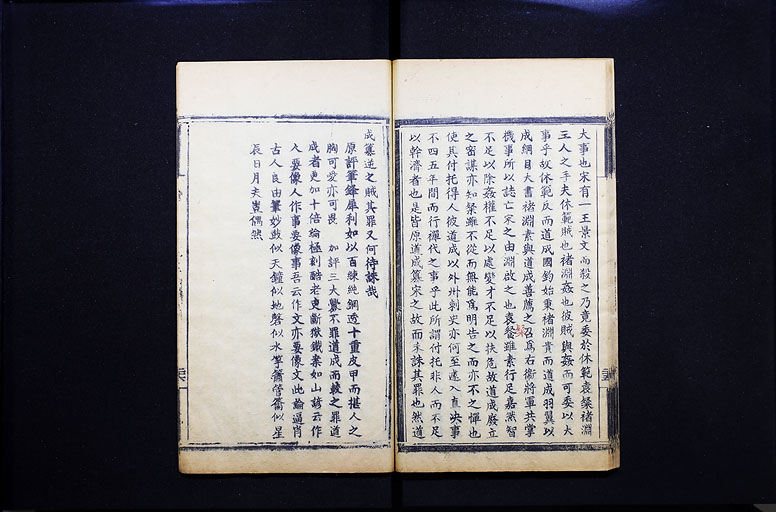 大事也宋有一王景文而殺之乃竟委於休範袁粲褚淵
王人之手夫休範賊也褚淵姦也彼賊與姦而可委以大
事乎故休範反而道成國鈞始秉褚淵貴而道成羽翼以
成綱目大書褚淵素與道成善薦之召爲右衛將軍共掌
機事所以誌亡宋之由淵啟之也袁粲雖素行足嘉然智
不足以除姦權不足以處變才不足以扶危故道成廢立
之密謀亦知粲雖不從而無能爲明告之而亦不之憚也
使其付托得人彼道成以外州刺史亦何至遽入直決事
不四五年間而行禪代之事乎此所謂付托非人而不足
以幹濟者也是皆原道成篡宋之故而未誅其罪也然道
成篡逆之賊其罪又何待誅哉
原評筆鋒犀利如以百練純鋼透十重皮甲而搭人之
胸可愛亦可畏 加評三大釁不罪道成而較之罪道
成者更加十倍綸極刻酷老吏斷獄鐵案如山諺云作
人要像人作事要像事吾云作文亦要像文此論逼肖
古人良由筆妙故似天鐘似地磬似水箏簫管籥似星
辰日月夫豈偶然